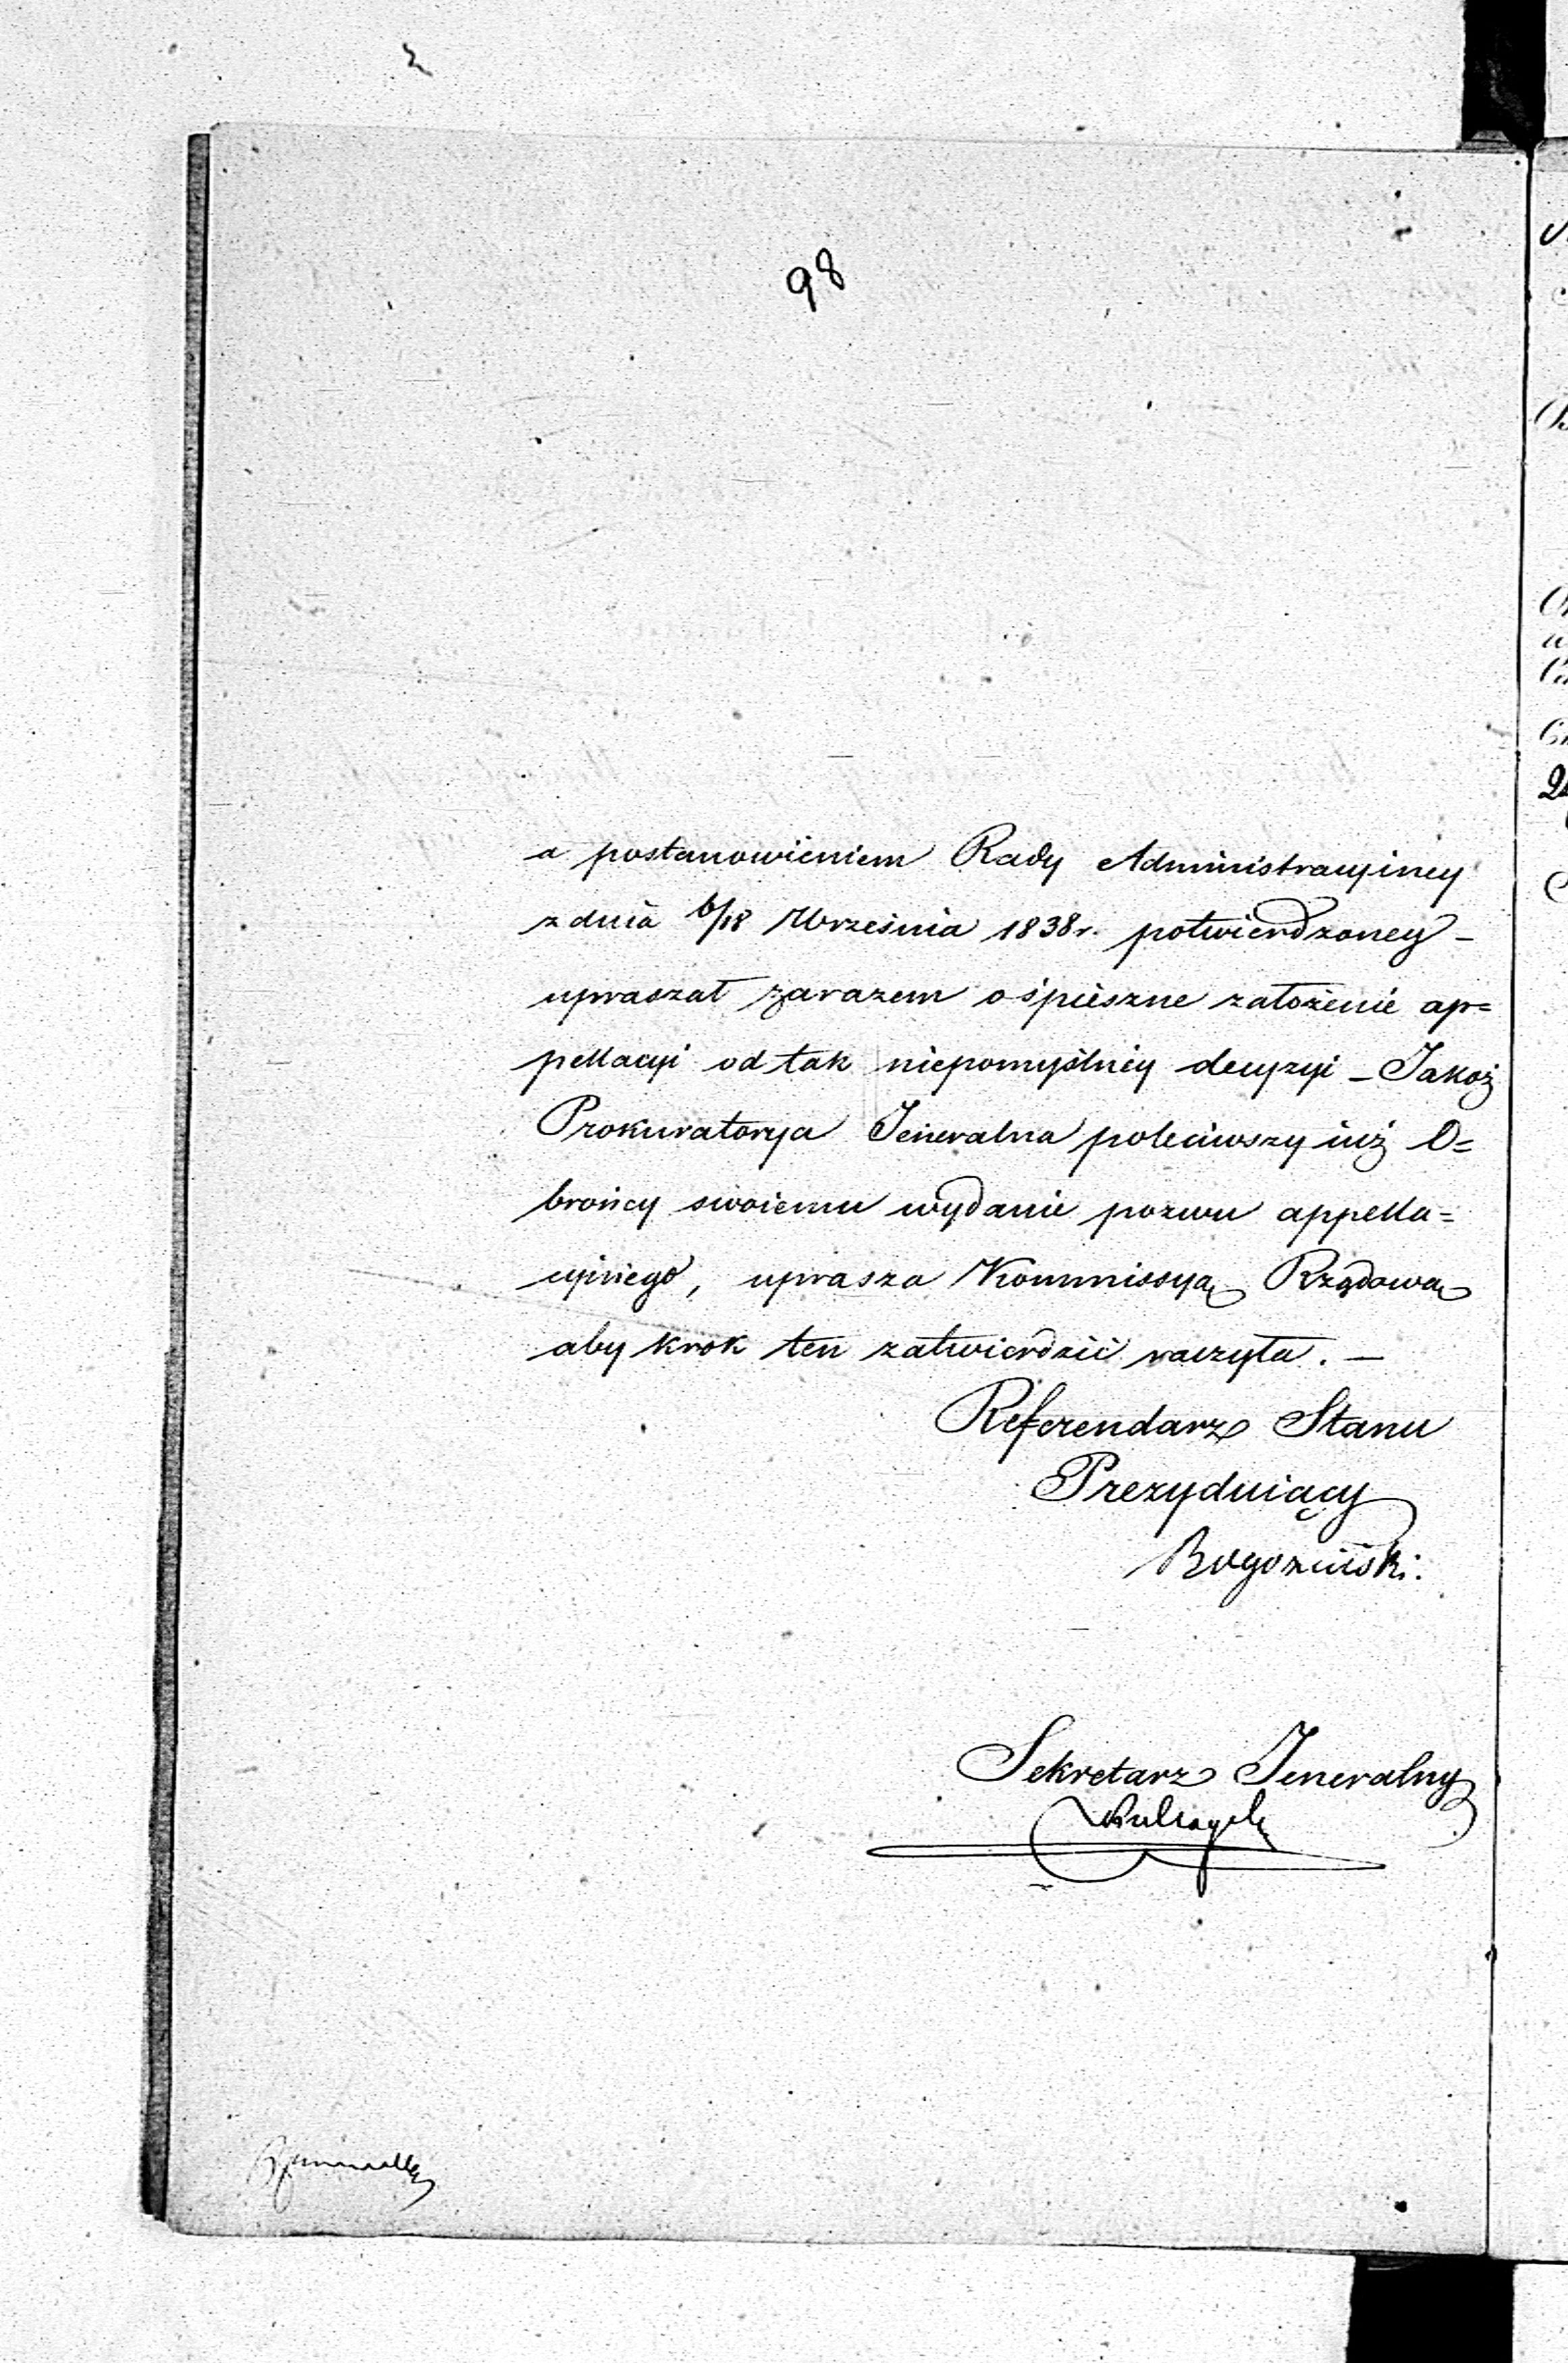 98
a postanowieniem Rady Administracyiney
z dnia 6/18 Września 1838 r. potwierdzoney –
upraszał zarazem o śpieszne założenie ap=
pellacyi od tak niepomyślney decyzyi – Jakoż
Prokuratorya Jeneralna poleciwszy iuż O=
brońcy swoiemu wydanie pozwu appella=
cyinego, uprasza Kommissyą Rządową
aby krok ten zatwierdzić raczyła. –
Referendarz Stanu
Prezyduiący
Sekretarz Jeneralny